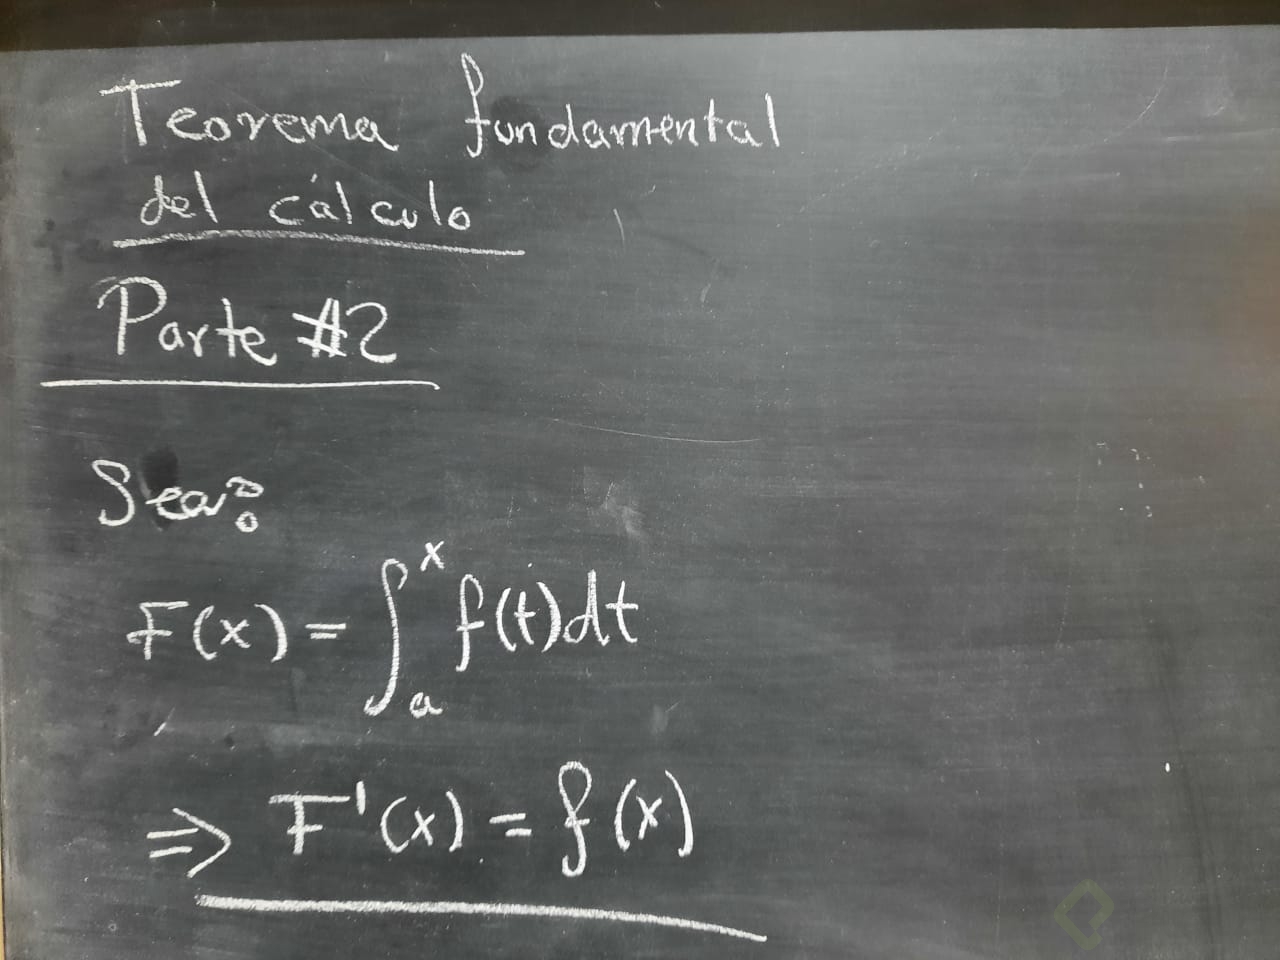 Teorema fundamental
del cálculo
Parte #2
Sea:
F(x) = ∫ₐˣ f(t)dt
⇒ F'(x) = f(x)